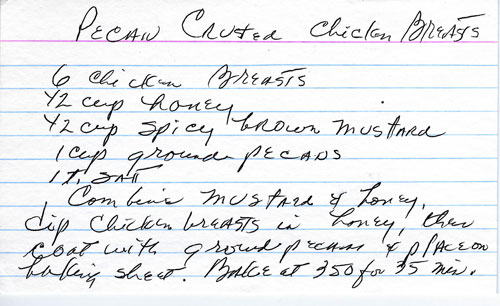 Pecan Crusted Chicken Breasts
6 chicken Breasts
1/2 cup honey
1/2 cup spicy brown mustard
1 cup ground pecans
1 t. salt
Combine mustard & honey,
dip chicken breasts in honey, then
coat with ground pecans & place on
baking sheet. Bake at 350 for 35 min.